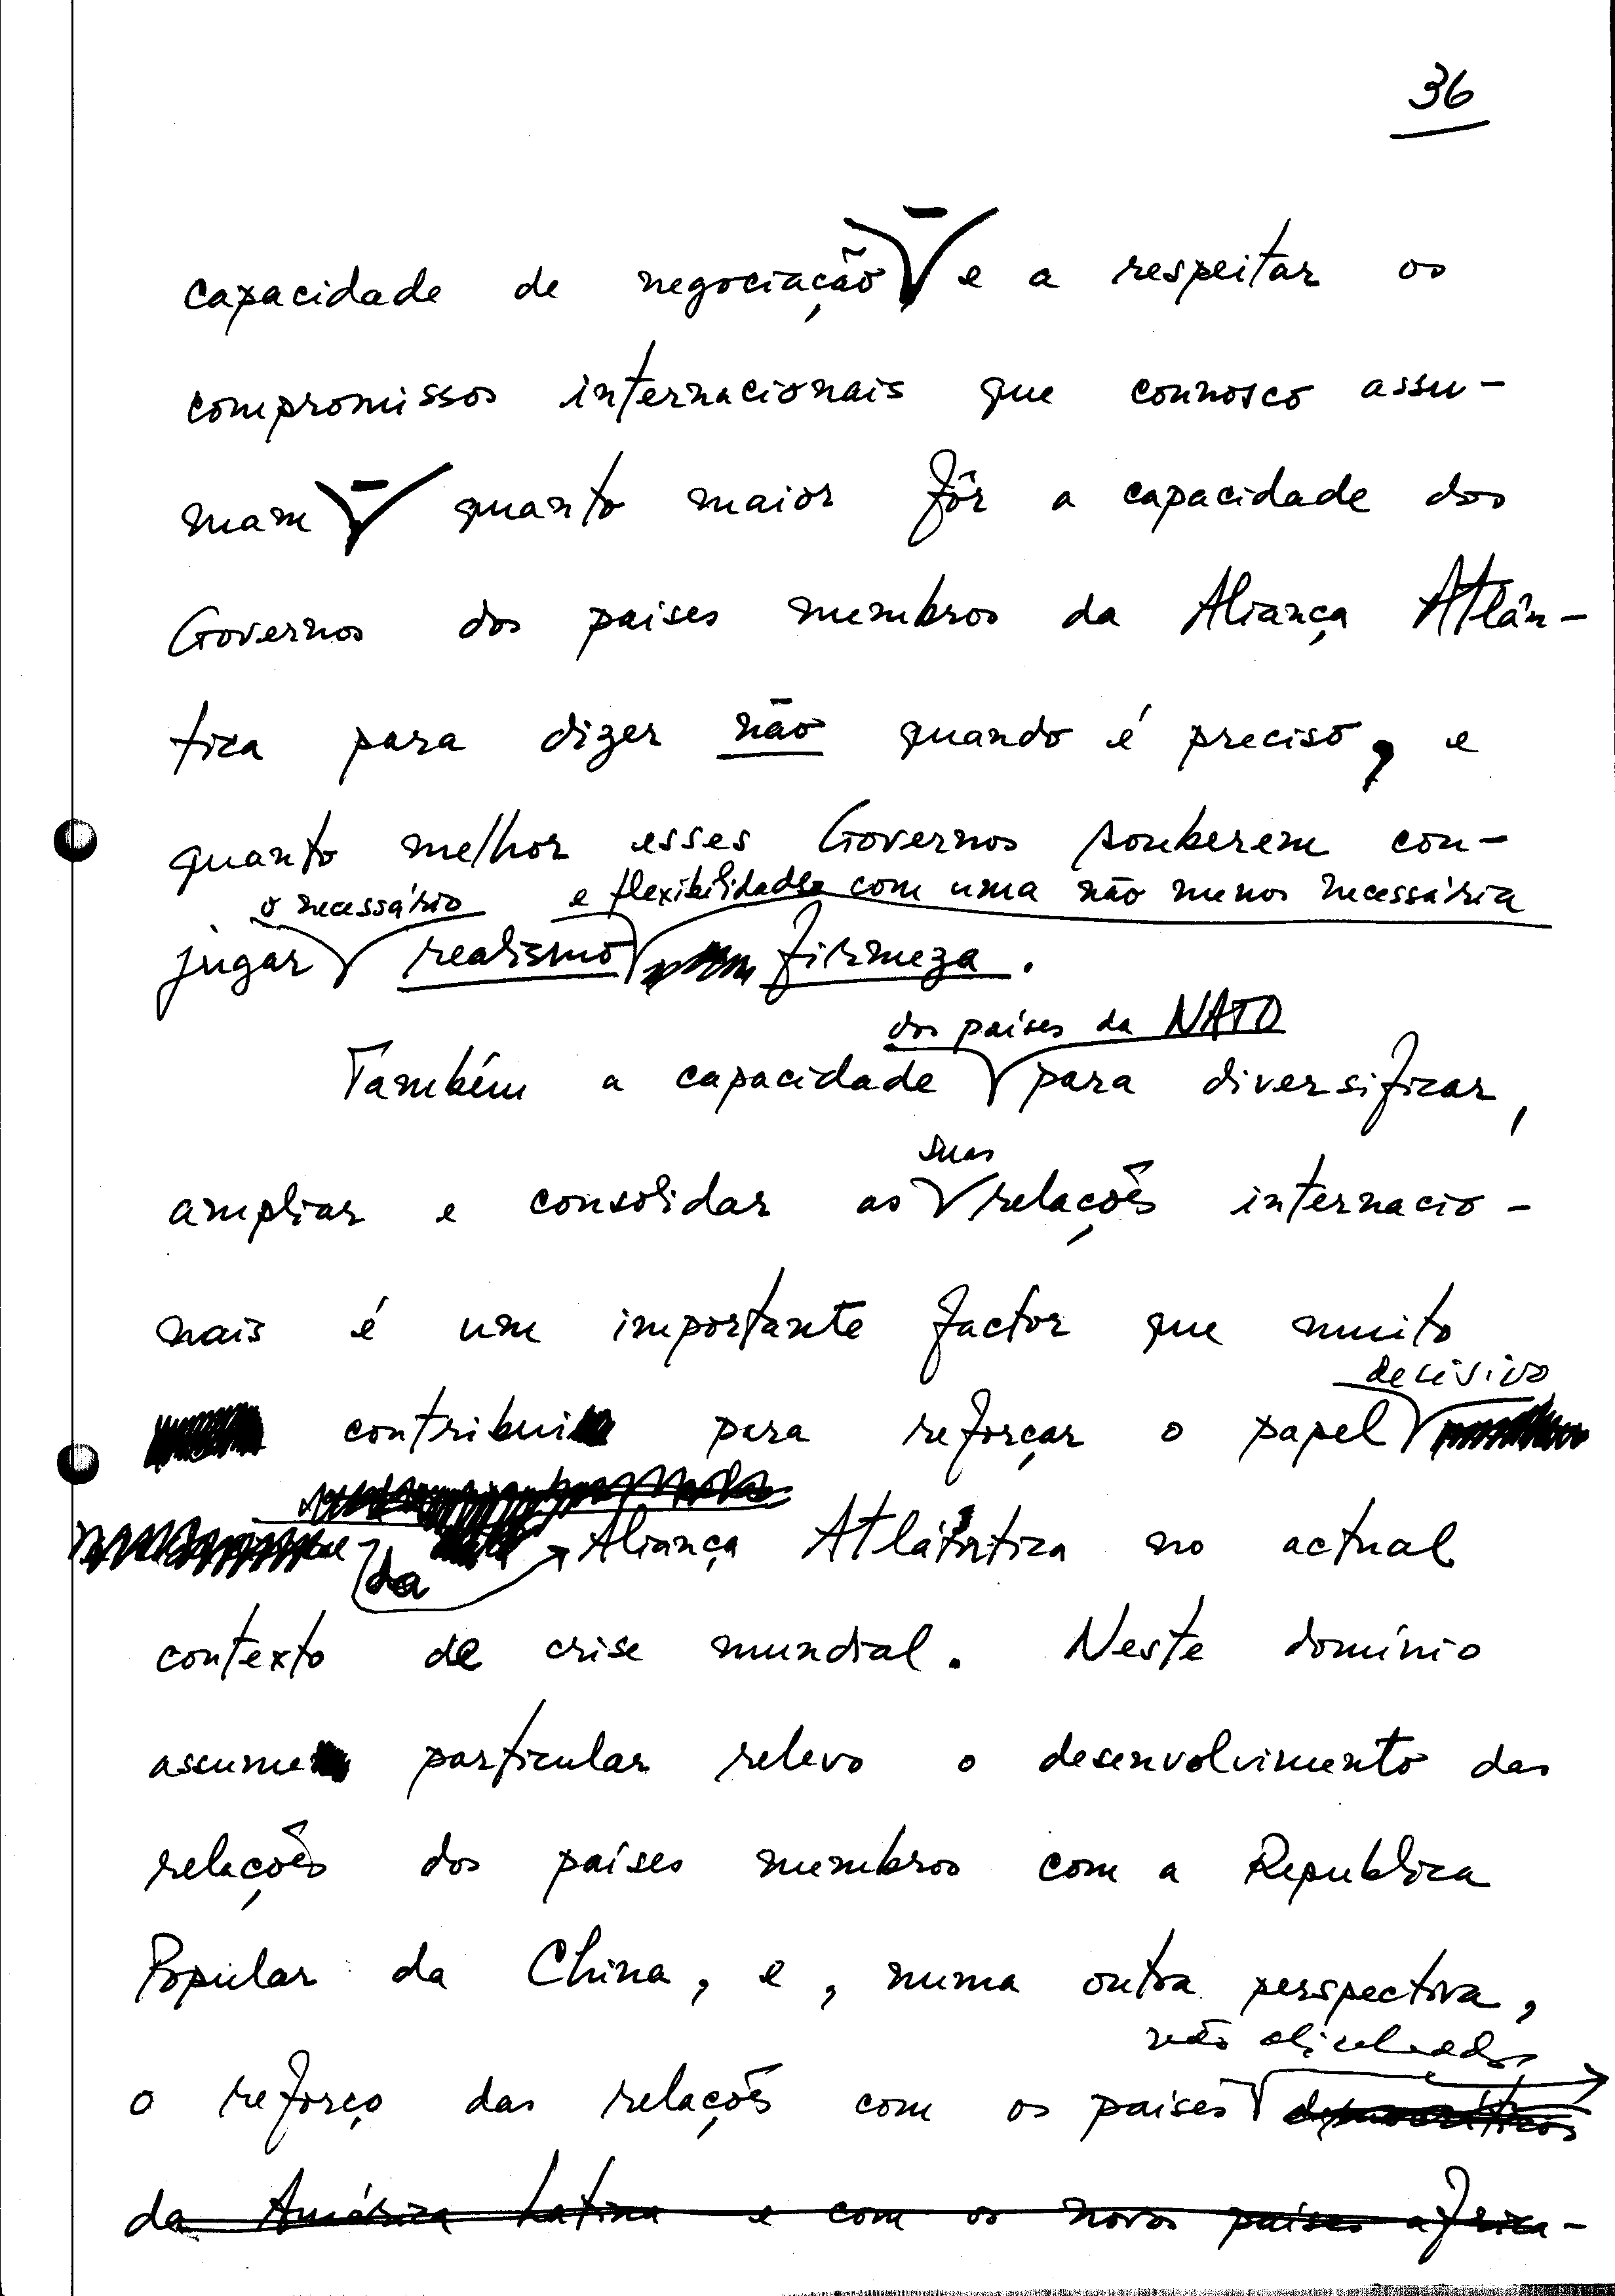 36
capacidade de negociação — e a respeitar os
compromissos internacionais que connosco assu-
mam — quanto maior fôr a capacidade dos
Governos dos paises membros da Aliança Atlân-
tica para dizer não quando é preciso, e
quanto melhor esses Governos souberem con-
o necessário e flexibilidade com uma não menos necessária
jugar realismo firmeza.
dos países da NATO
Também a capacidade para diversificar,
suas
ampliar e consolidar as relações internacio-
nais é um importante factor que muito
decisivo
contribui para reforçar o papel
da Aliança Atlântica no actual
contexto de crise mundial. Neste domínio
assume particular relevo o desenvolvimento das
relações dos países membros com a Republica
Popular da China, e, numa outra perspectiva,
não alinhados
o reforço das relações com os paises democráticos
da América Latina e com os novos países africa-